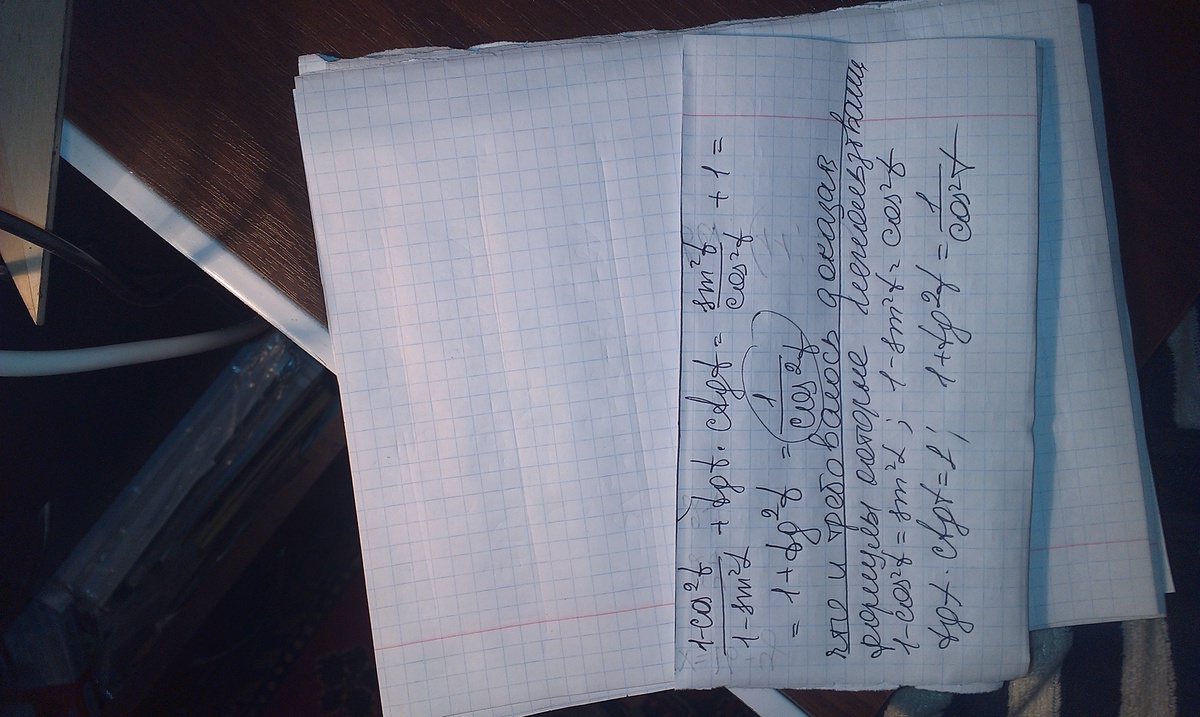 (1-cos²α)/(1-sin²α) + tgα · ctgα = sin²α/cos²α + 1 =
= 1 + tg²α = 1/cos²α
что и требовалось доказать
формулы которые
1-cos²α = sin²α; 1-sin²α = cos²α
tgα · ctgα = 1; 1+tg²α = 1/cos²α